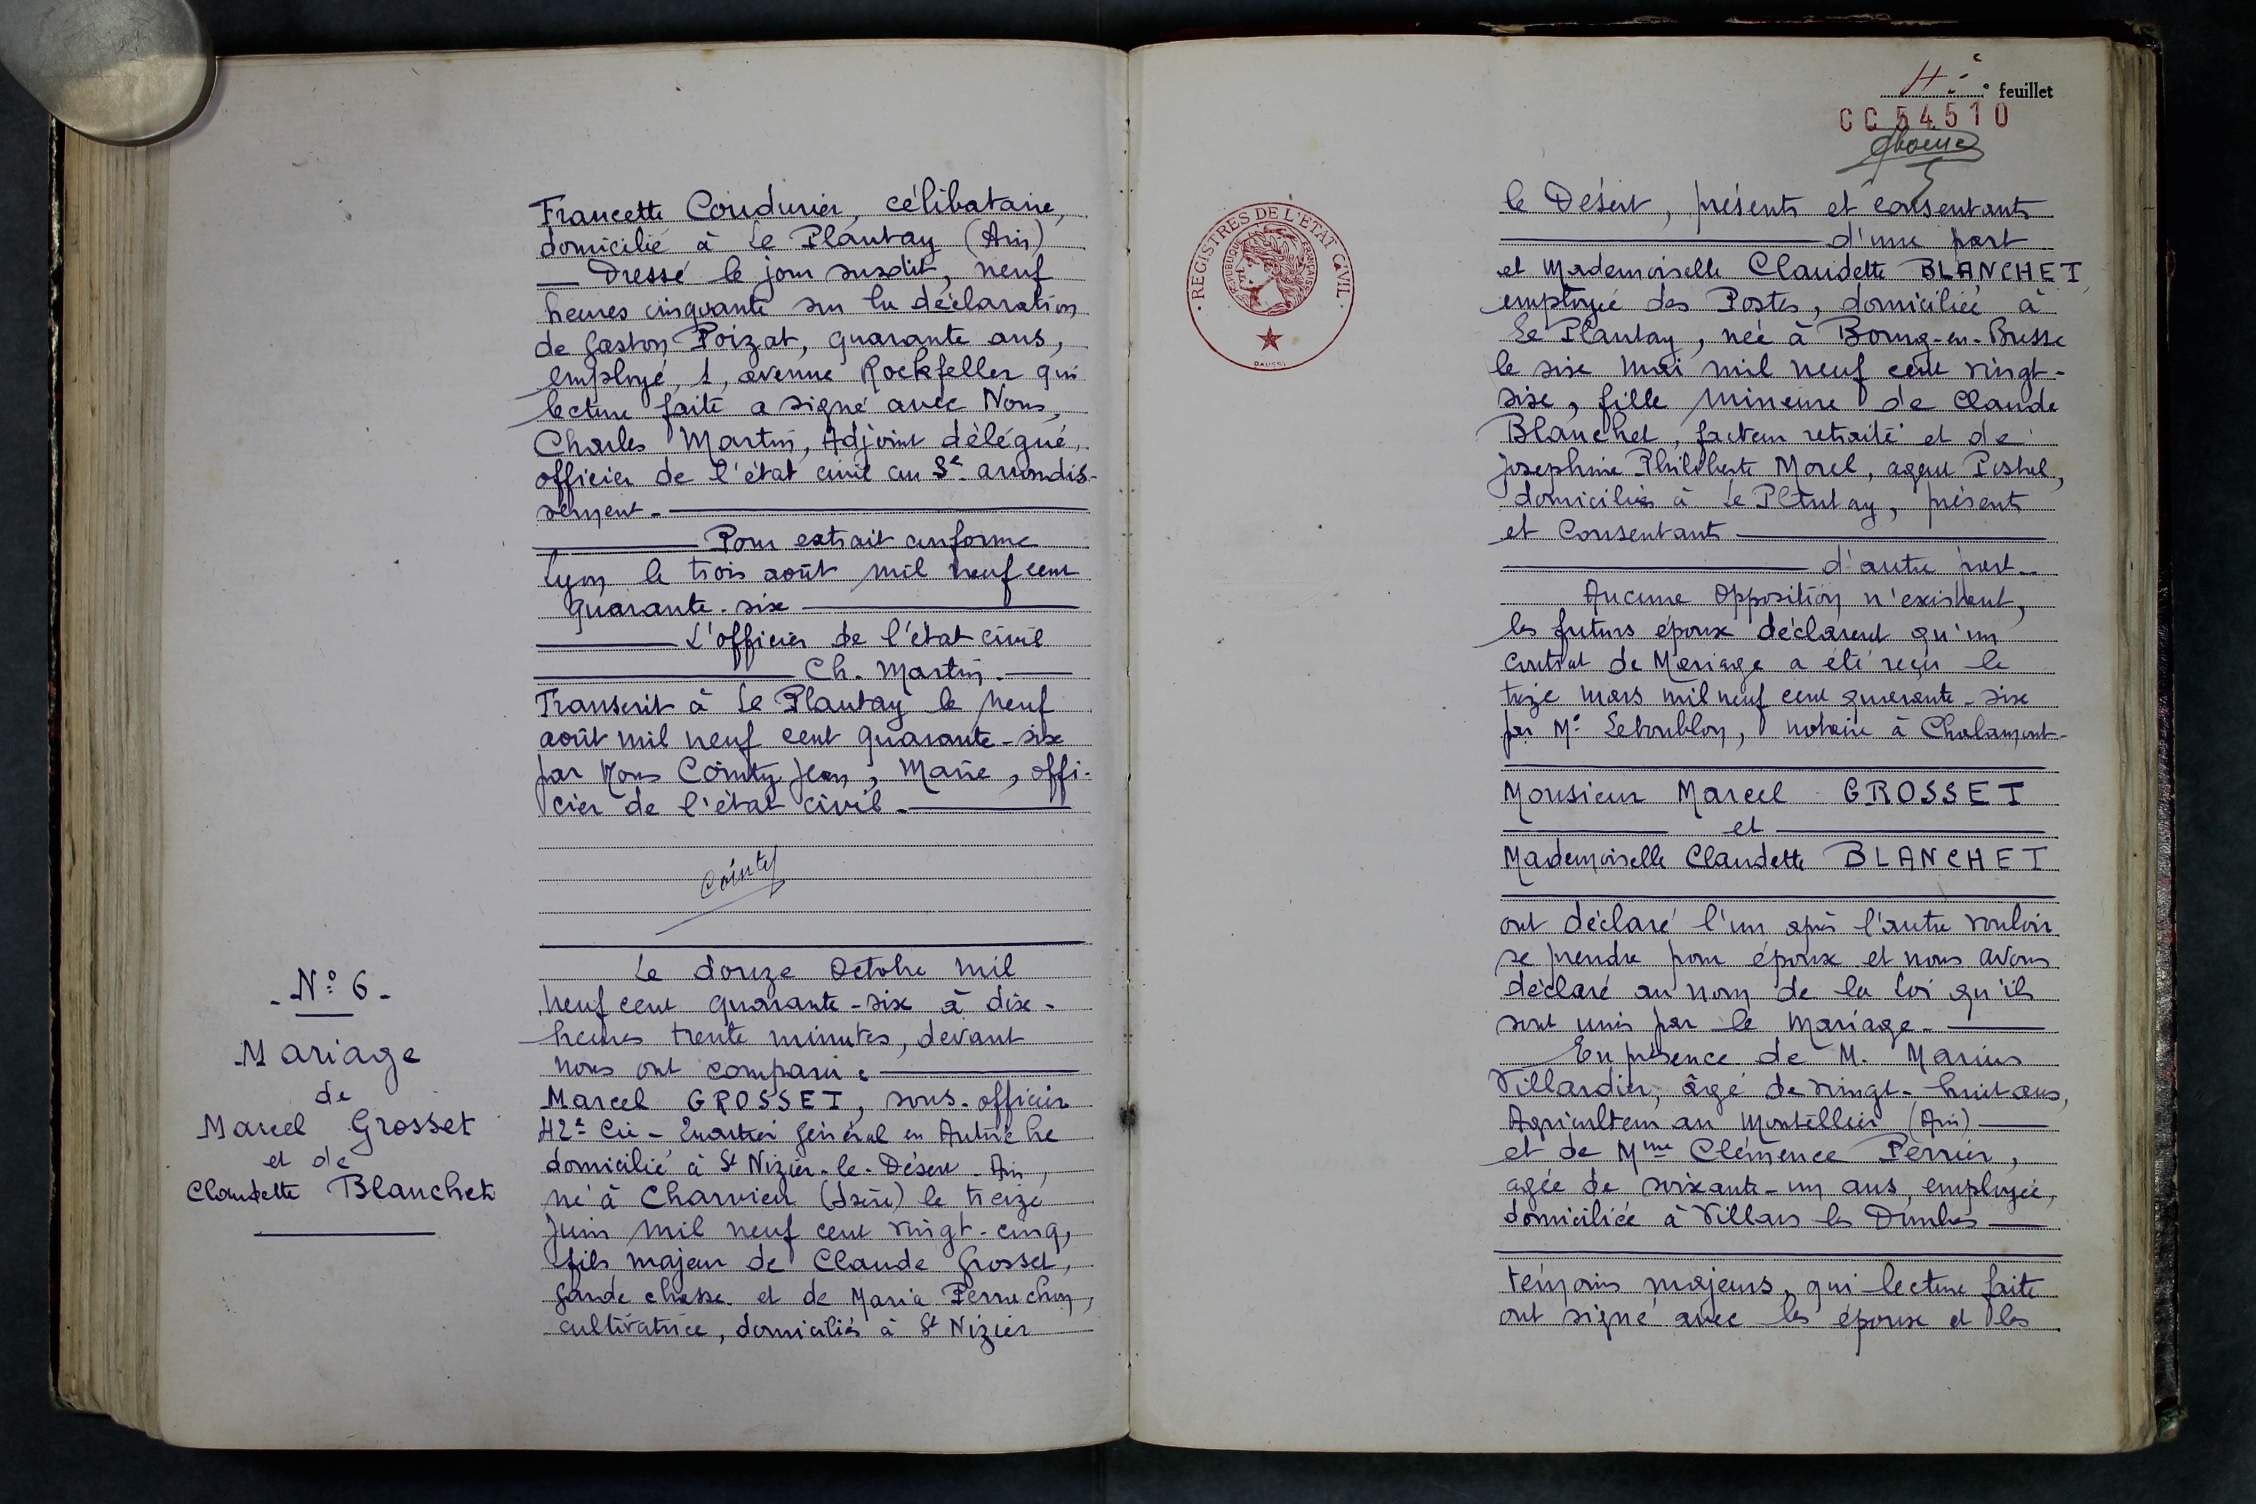 Francette Coudurier, célibataire,
domicilié à Le Plantay (Ain)
Dressé le jour susdit, neuf
heures cinquante sur la déclaration
de Gaston Poizat, quarante ans,
employé, 1, avenue Rockfeller qui
lecture faite a signé avec Nous,
Charles Martin, Adjoint délégué,
officier de l'état civil au 3e arrondis-
sement.
Pour extrait conforme
Lyon le trois août mil neuf cent
quarante-six
L'officier de l'état civil
Ch. Martin.
Transcrit à Le Plantay le neuf
août mil neuf cent quarante-six
par Nous Cointy Jean, Maire, offi-
cier de l'état civil.
Cointy
- N° 6 -
Mariage
de
Marcel Grosset
et de
Claudette Blanchet
Le douze Octobre mil
neuf cent quarante-six à dix-
heures trente minutes, devant
nous ont comparu :
Marcel GROSSET, sous-officier
42e Cie - Quartier Général en Autriche
domicilié à St Nizier-le-Désert - Ain,
né à Charvieu (Isère) le treize
Juin mil neuf cent vingt-cinq,
fils majeur de Claude Grosset,
garde chasse et de Maria Perruchon,
cultivatrice, domiciliés à St Nizier
REGISTRES DE L'ÉTAT CIVIL
RÉPUBLIQUE FRANÇAISE
DAUSSY
4e feuillet
CC 54510
le Désert, présents et consentants
d'une part
et Mademoiselle Claudette BLANCHET
employée des Postes, domiciliée à
Le Plantay, née à Bourg-en-Bresse
le six mai mil neuf cent vingt-
six, fille mineure de Claude
Blanchet, facteur retraité et de
Josephine Philiberte Morel, agent Postal,
domiciliés à Le Plantay, présents
et Consentants
d'autre part
Aucune opposition n'existant,
les futurs époux déclarent qu'un
contrat de Mariage a été reçu le
treize mars mil neuf cent quarante-six
par Me Letoublon, notaire à Chalamont
Monsieur Marcel GROSSET
et
Mademoiselle Claudette BLANCHET
ont déclaré l'un après l'autre vouloir
se prendre pour époux et nous avons
déclaré au nom de la loi qu'ils
sont unis par le Mariage.
En présence de M. Marius
Villardier, âgé de vingt-huit ans,
Agriculteur au Montellier (Ain)
et de Mme Clémence Perrier,
agée de soixante-un ans, employée,
domiciliée à Villars les Dombes
témoins majeurs, qui lecture faite
ont signé avec les époux et les